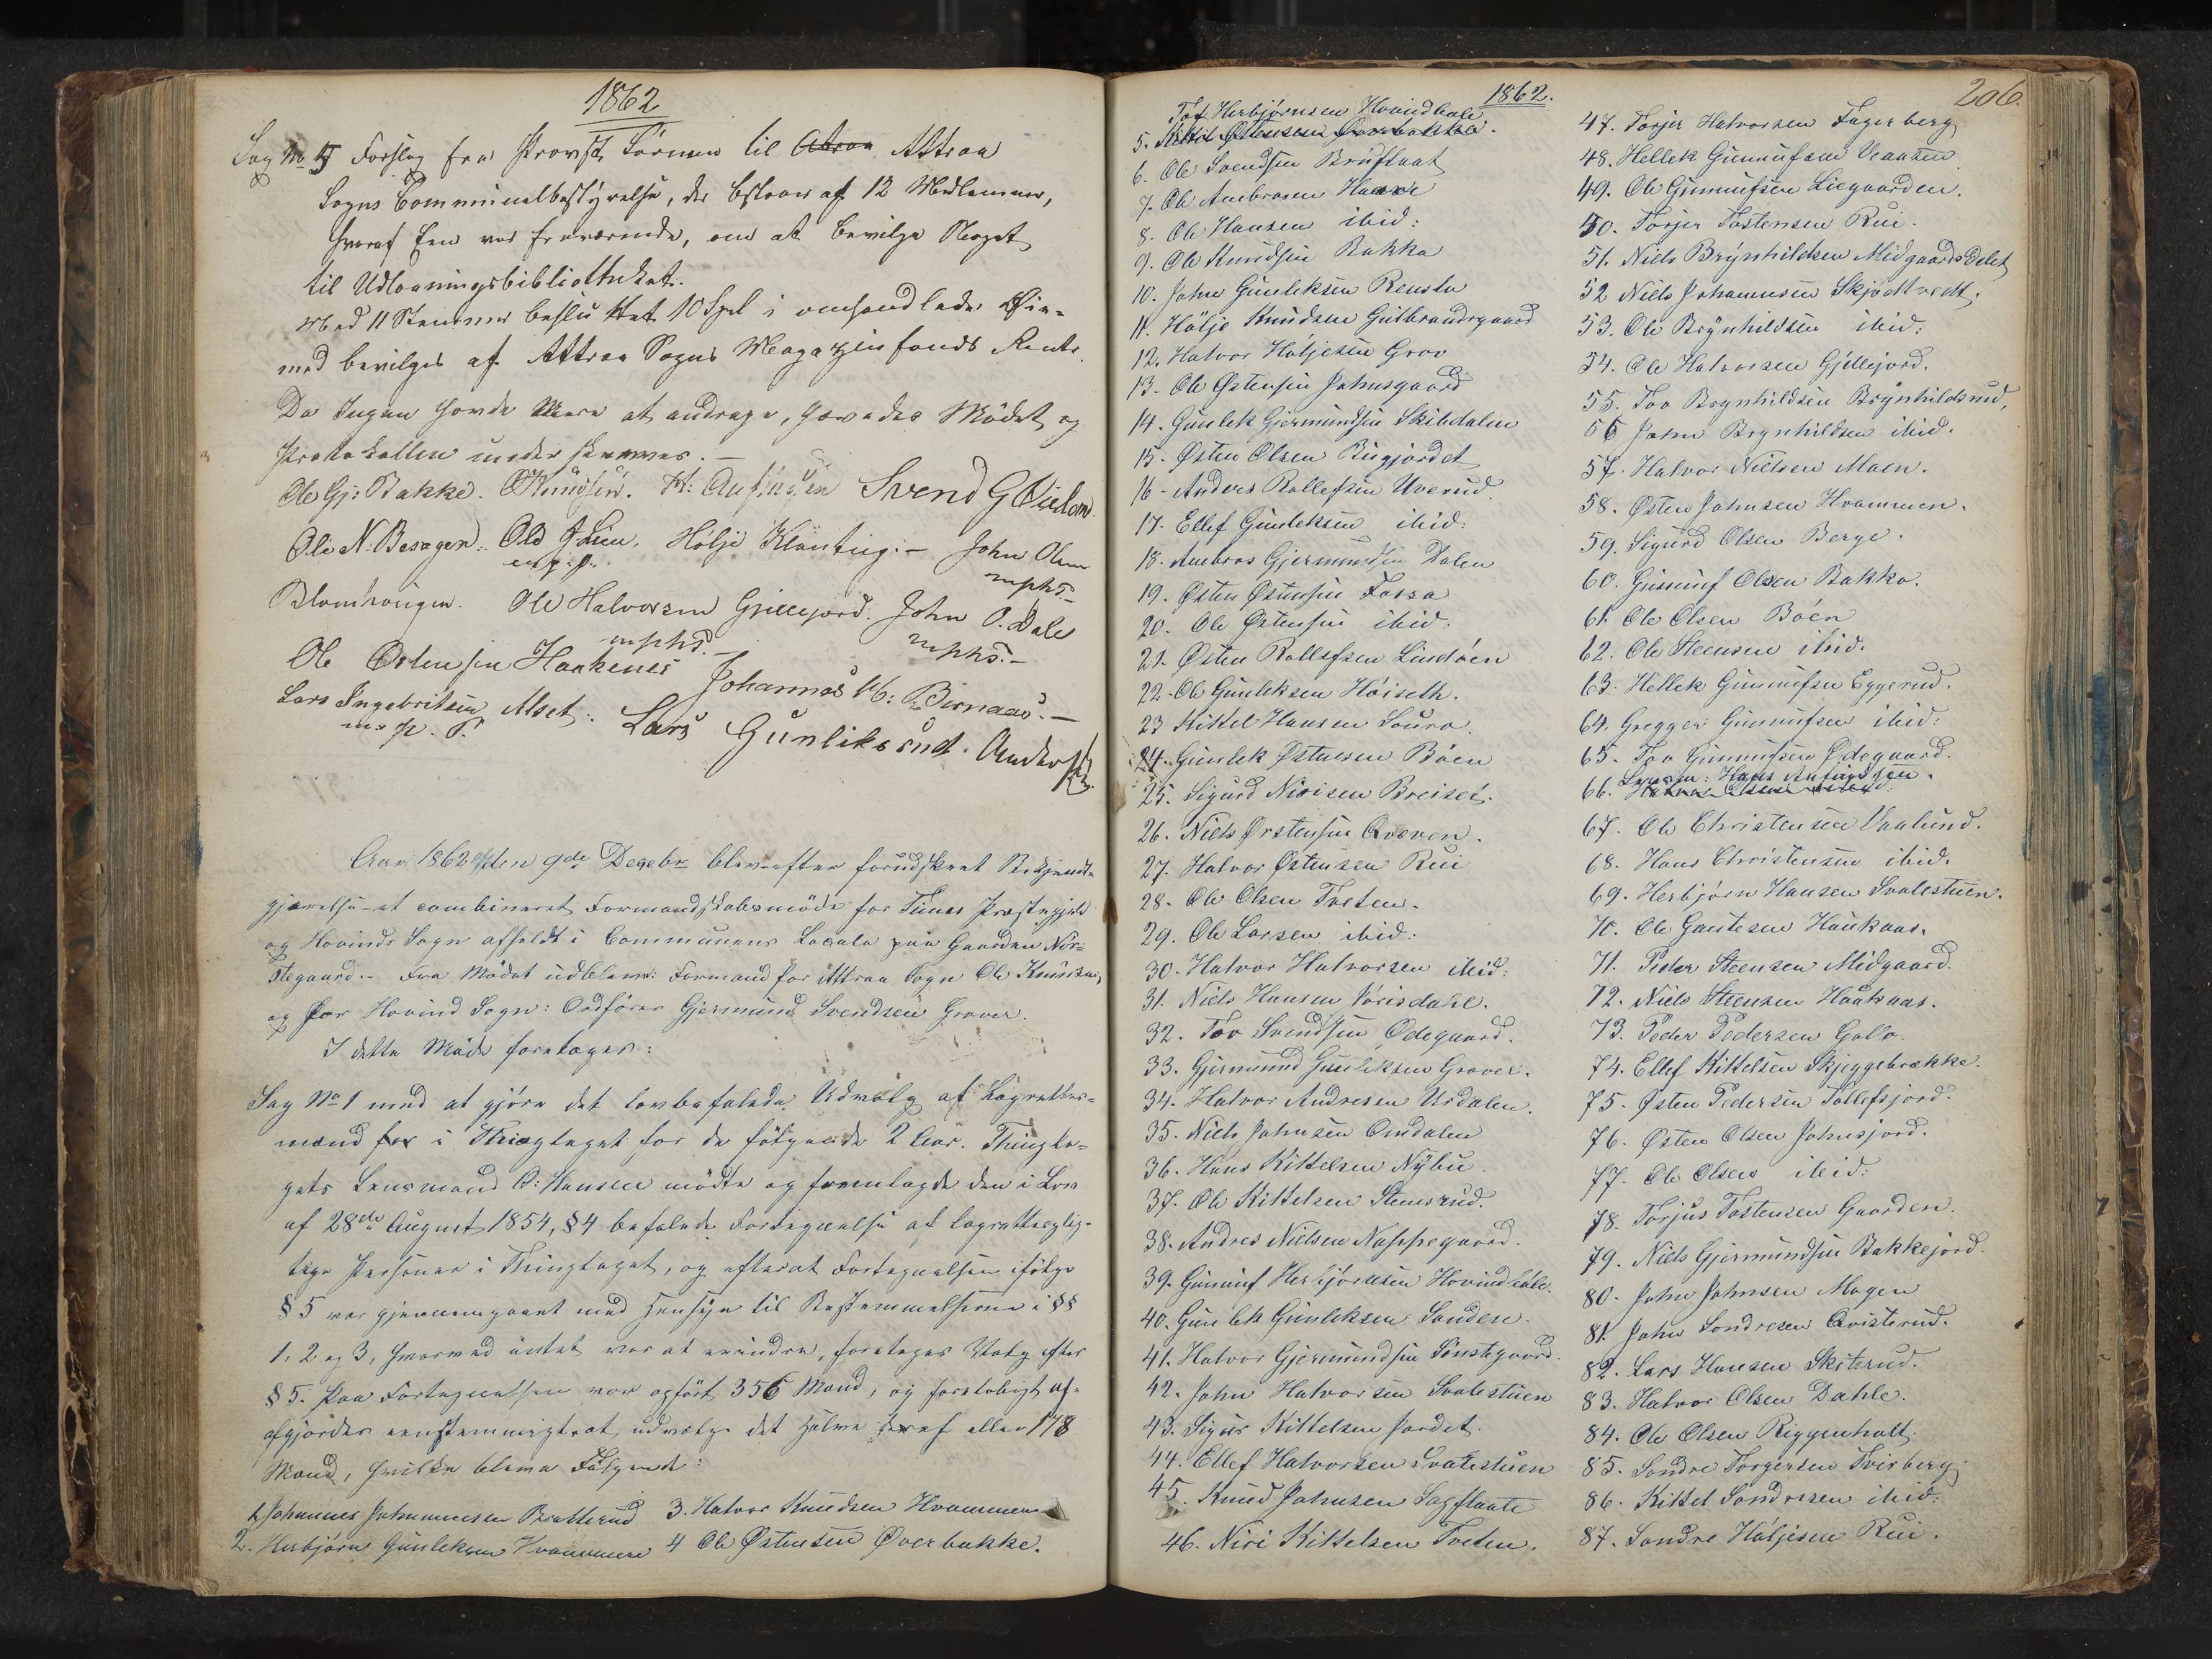 1862
Sag No 5 Forslag fra Provst Sörensen til Atraa Attraa
Sogns Communalbestyrelse, der bestaar af 12 Medlemmer,
hvoraf Een var fraværende, om at bevilge Noget
til Udlaaningsbibliotheket.
Med 11 Stemmer besluttet 10 Spd i omhandlede Øie-
med bevilges af Attraa Sogns Magazinfonds Rente.
Da Ingen havde Mere at andrage, hævedes Mødet og
Protokollen underskreves. —
Ole Gj: Bakke. OKnudsen. H: Anfindsen Svend G
Ole N. Besagen. Ole J. Lien. Hølje Klønteig. — John Olsen
m. p. p. mphs. —
Ole Halvorsen Gjellejord. John O. Dale
mphs. — mphs. —
Ole Østensen Haakenes Johannes M: Bernaas. —
Lars Ingebritsen Alset. Lars Gunleiksrud.
m. p. P.
Aar 1862 den 9de Decebr blev efter forudskeet Bekjendt-
gjørelse et combineret Formandskabsmöde for Tinns Præstegjeld
og Hovinds Sogn afholdt i Communens Locale paa Gaarden Nor-
stegaard. — Fra Mödet udbleve: Formand for Attraa Sogn Ole Knudsen,
og for Hovind Sogn: Ordförer Gjermund Svendsen Graver.
I dette Möde foretoges:
Sag No 1 med at gjöre det lovbefalede Udvalg af Lagrettes-
mænd for i Thinglaget for de fölgende 2 Aar. Thingla-
gets Lensmand O: Hansen mödte og fremlagde den i Lov
af 28de August 1854, § 4 befalede Fortegnelse af lagretteplig-
tige Personer i Thinglaget, og efterat Fortegnelsen ifölge
§ 5 var gjennemgaaet med Hensyn til Bestemmelserne i §§
1, 2 og 3, hvorved intet var at erindre, foretoges Valg efter
§ 5. Paa Fortegnelsen var opfört 356 Mand, og foreløbigt af-
afgjordes eenstemmigt, at udvælge det halve heraf eller 178
Mand, hvilke bleve Fölgende:
1. Johannes Johannesen Bratterud 3. Halvor Knudsen Hvammen
2. Herbjörn Gunleksen Hvammen 4 Ole Østensen Øverbakke.
1862.
Tof Herbjørnsen Hovindbole
5. Kittil Østensen Øverbakke.
6. Ole Svendsen Bruflaat
7. Ole Ambrosen Haave
8. Ole Hansen ibid:
9. Ole Knudsen Bakka
10. John Gunleksen Rensla
11. Hölje Knudsen Gulbrandsgaard
12. Halvor Höljesen Grov
13. Ole Østensen Johnsgaard
14. Gunlek Gjermundsen Skibdalen
15. Østen Olsen Bugjordet
16. Andres Rollefsen Uverud.
17. Ellef Gunleksen ibid:
18. Ambros Gjermundsen Dalen
19. Østen Østensen Fossa
20. Ole Østensen ibid:
21. Østen Rollefsen Lindöen
22. Ole Gunleksen Höiseth.
23 Kittel Hansen Loura.
24. Gunlek Østensen Böen
25. Sigurd Nirisen Breiset.
26. Niels Ørstensen Qværen.
27. Halvor Østensen Rui
28. Ole Olsen Tveten.
29. Ole Larsen ibid:
30. Halvor Halvorsen ibid:
31. Niels Hansen Vørisdahl.
32. Tov Svendsen Ødegaard.
33. Gjermund Gunleksen Graver.
34. Halvor Andresen Urdalen.
35. Niels Johnsen Omdalen
36. Hans Kittelsen Nybu
37. Ole Kittelsen Stensrud.
38. Andres Nielsen Nappegaard.
39. Gunnuf Herbjörnsen Hovindbole.
40. Gunlek Gunleksen Sanden.
41. Halvor Gjermundsen Sönstegaard.
42. John Halvorsen Svalestuen
43. Sigur Kittelsen Jordet.
44. Ellef Halvorsen Svalestuen
45. Knud Johnsen Sagflaate
46. Niri Kittelsen Tveten.
206.
47. Torjer Halvorsen Fagerberg
48. Hellek Gunnufsen Vaasen
49. Ole Gunnufsen Liegaarden.
50. Torjer Tostensen Rui.
51. Niels Brynhildsen MidgaardsDelet
52 Niels Johannesen Skjödtvedt.
53. Ole Brynhildsen ibid:
54. Ole Halvorsen Gjellejord.
55. Tov Brynhildsen Brynhildsrud,
56 John Brynhildsen ibid.
57. Halvor Nielsen Moen.
58. Østen Johnsen Hvammen.
59. Sigurd Olsen Berge.
60. Gunnuf Olsen Bakka.
61. Ole Olsen Böen
62. Ole Steensen ibid.
63. Hellek Gunnufsen Eggerud.
64. Gregger Gunnufsen ibid:
65. Tov Gunnufsen Ødegaard.
66. Hans Anfindsen.
67. Ole Christensen Vaalund.
68. Hans Christensen ibid.
69. Herbjörn Hansen Svalestuen.
70. Ole Gautesen Haukaas.
71. Peder Steensen Midgaard.
72. Niels Steensen Haukaas.
73. Peder Pedersen Gollo.
74. Ellef Kittelsen Skjeggebrække.
75. Østen Pedersen Tollefsjord.
76. Østen Olsen Johnsjord.
77. Ole Olsen ibid:
78. Torjus Tostensen Gaarden.
79. Niels Gjermundsen Bakkejord.
80. John Johnsen Mogen
81. John Sondresen Qvisterud.
82. Lars Hansen Skiterud.
83. Halvor Olsen Dahle.
84. Ole Olsen Riggenholt.
85. Sondre Torgersen Tveirberg
86. Kittel Sondresen ibid:
87. Sondre Höljesen Rui.